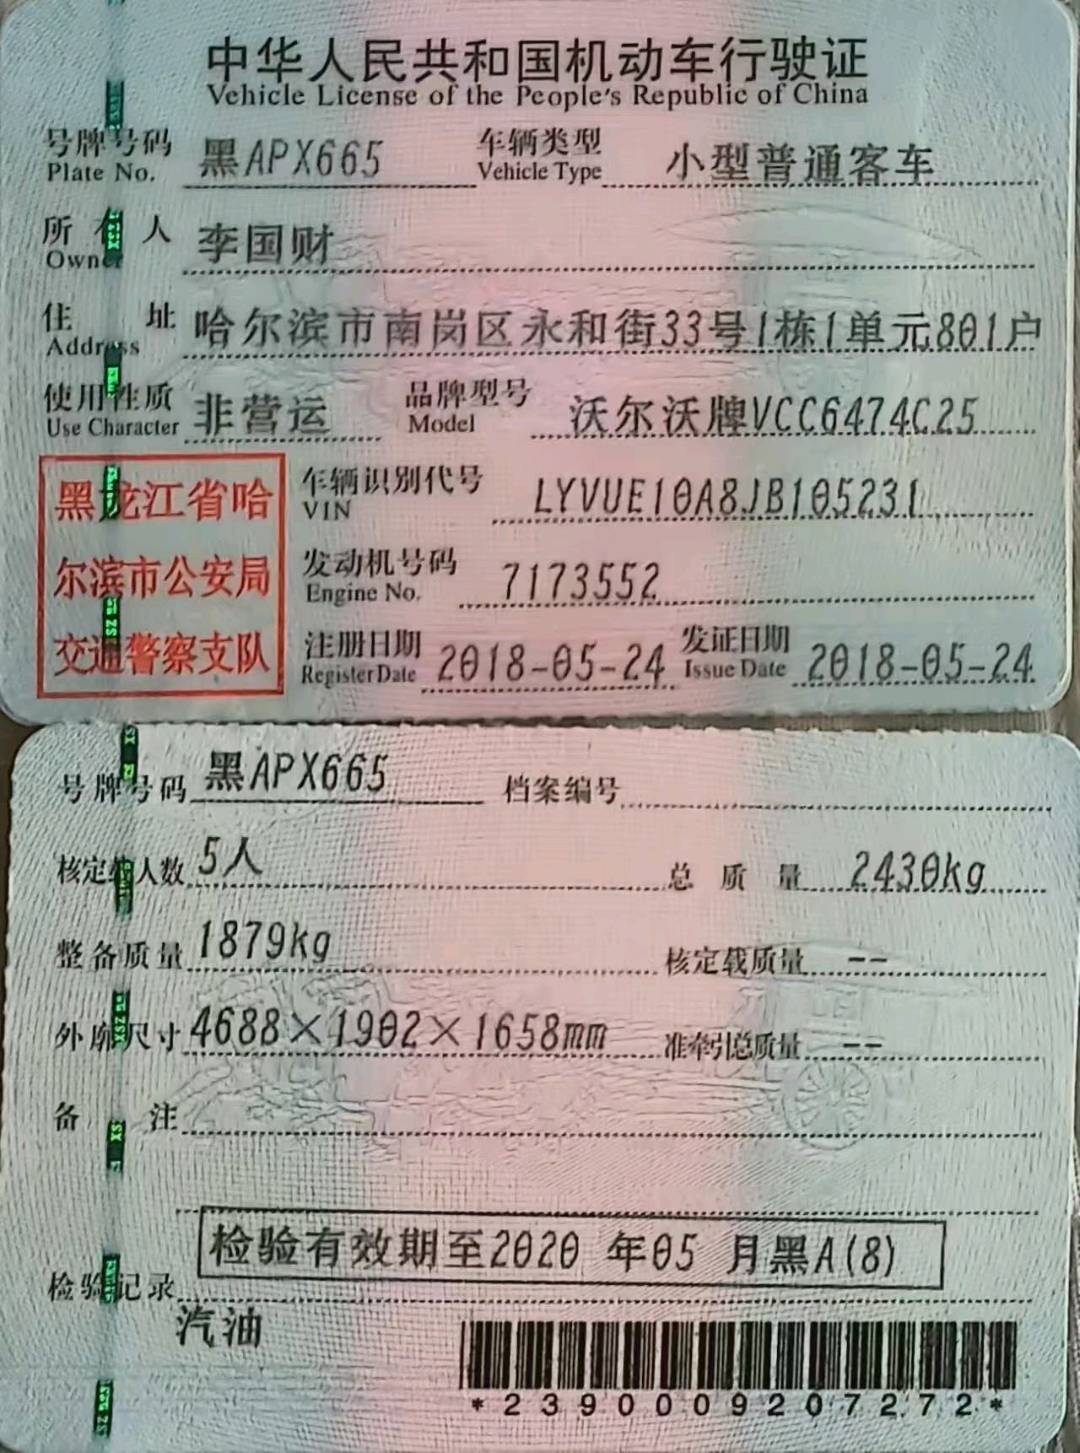 中华人民共和国机动车行驶证
Vehicle License of the People's Republic of China
号牌号码 黑APX665 车辆类型 小型普通客车
Plate No. Vehicle Type
所有人 李国财
Owner
住址 哈尔滨市南岗区永和街33号1栋1单元801户
Address
使用性质 非营运 品牌型号 沃尔沃牌VCC6474C25
Use Character Model
黑龙江省哈
尔滨市公安局
交通警察支队
车辆识别代号 LYVUE10A8JB105231
VIN
发动机号码 7173552
Engine No.
注册日期 2018-05-24 发证日期 2018-05-24
Register Date Issue Date
号牌号码 黑APX665 档案编号
核定载人数 5人 总质量 2430kg
整备质量 1879kg 核定载质量 --
外廓尺寸 4688×1902×1658mm 准牵引总质量 --
备注
检验有效期至2020 年05 月黑A(8)
检验记录
汽油
*2390009207272*